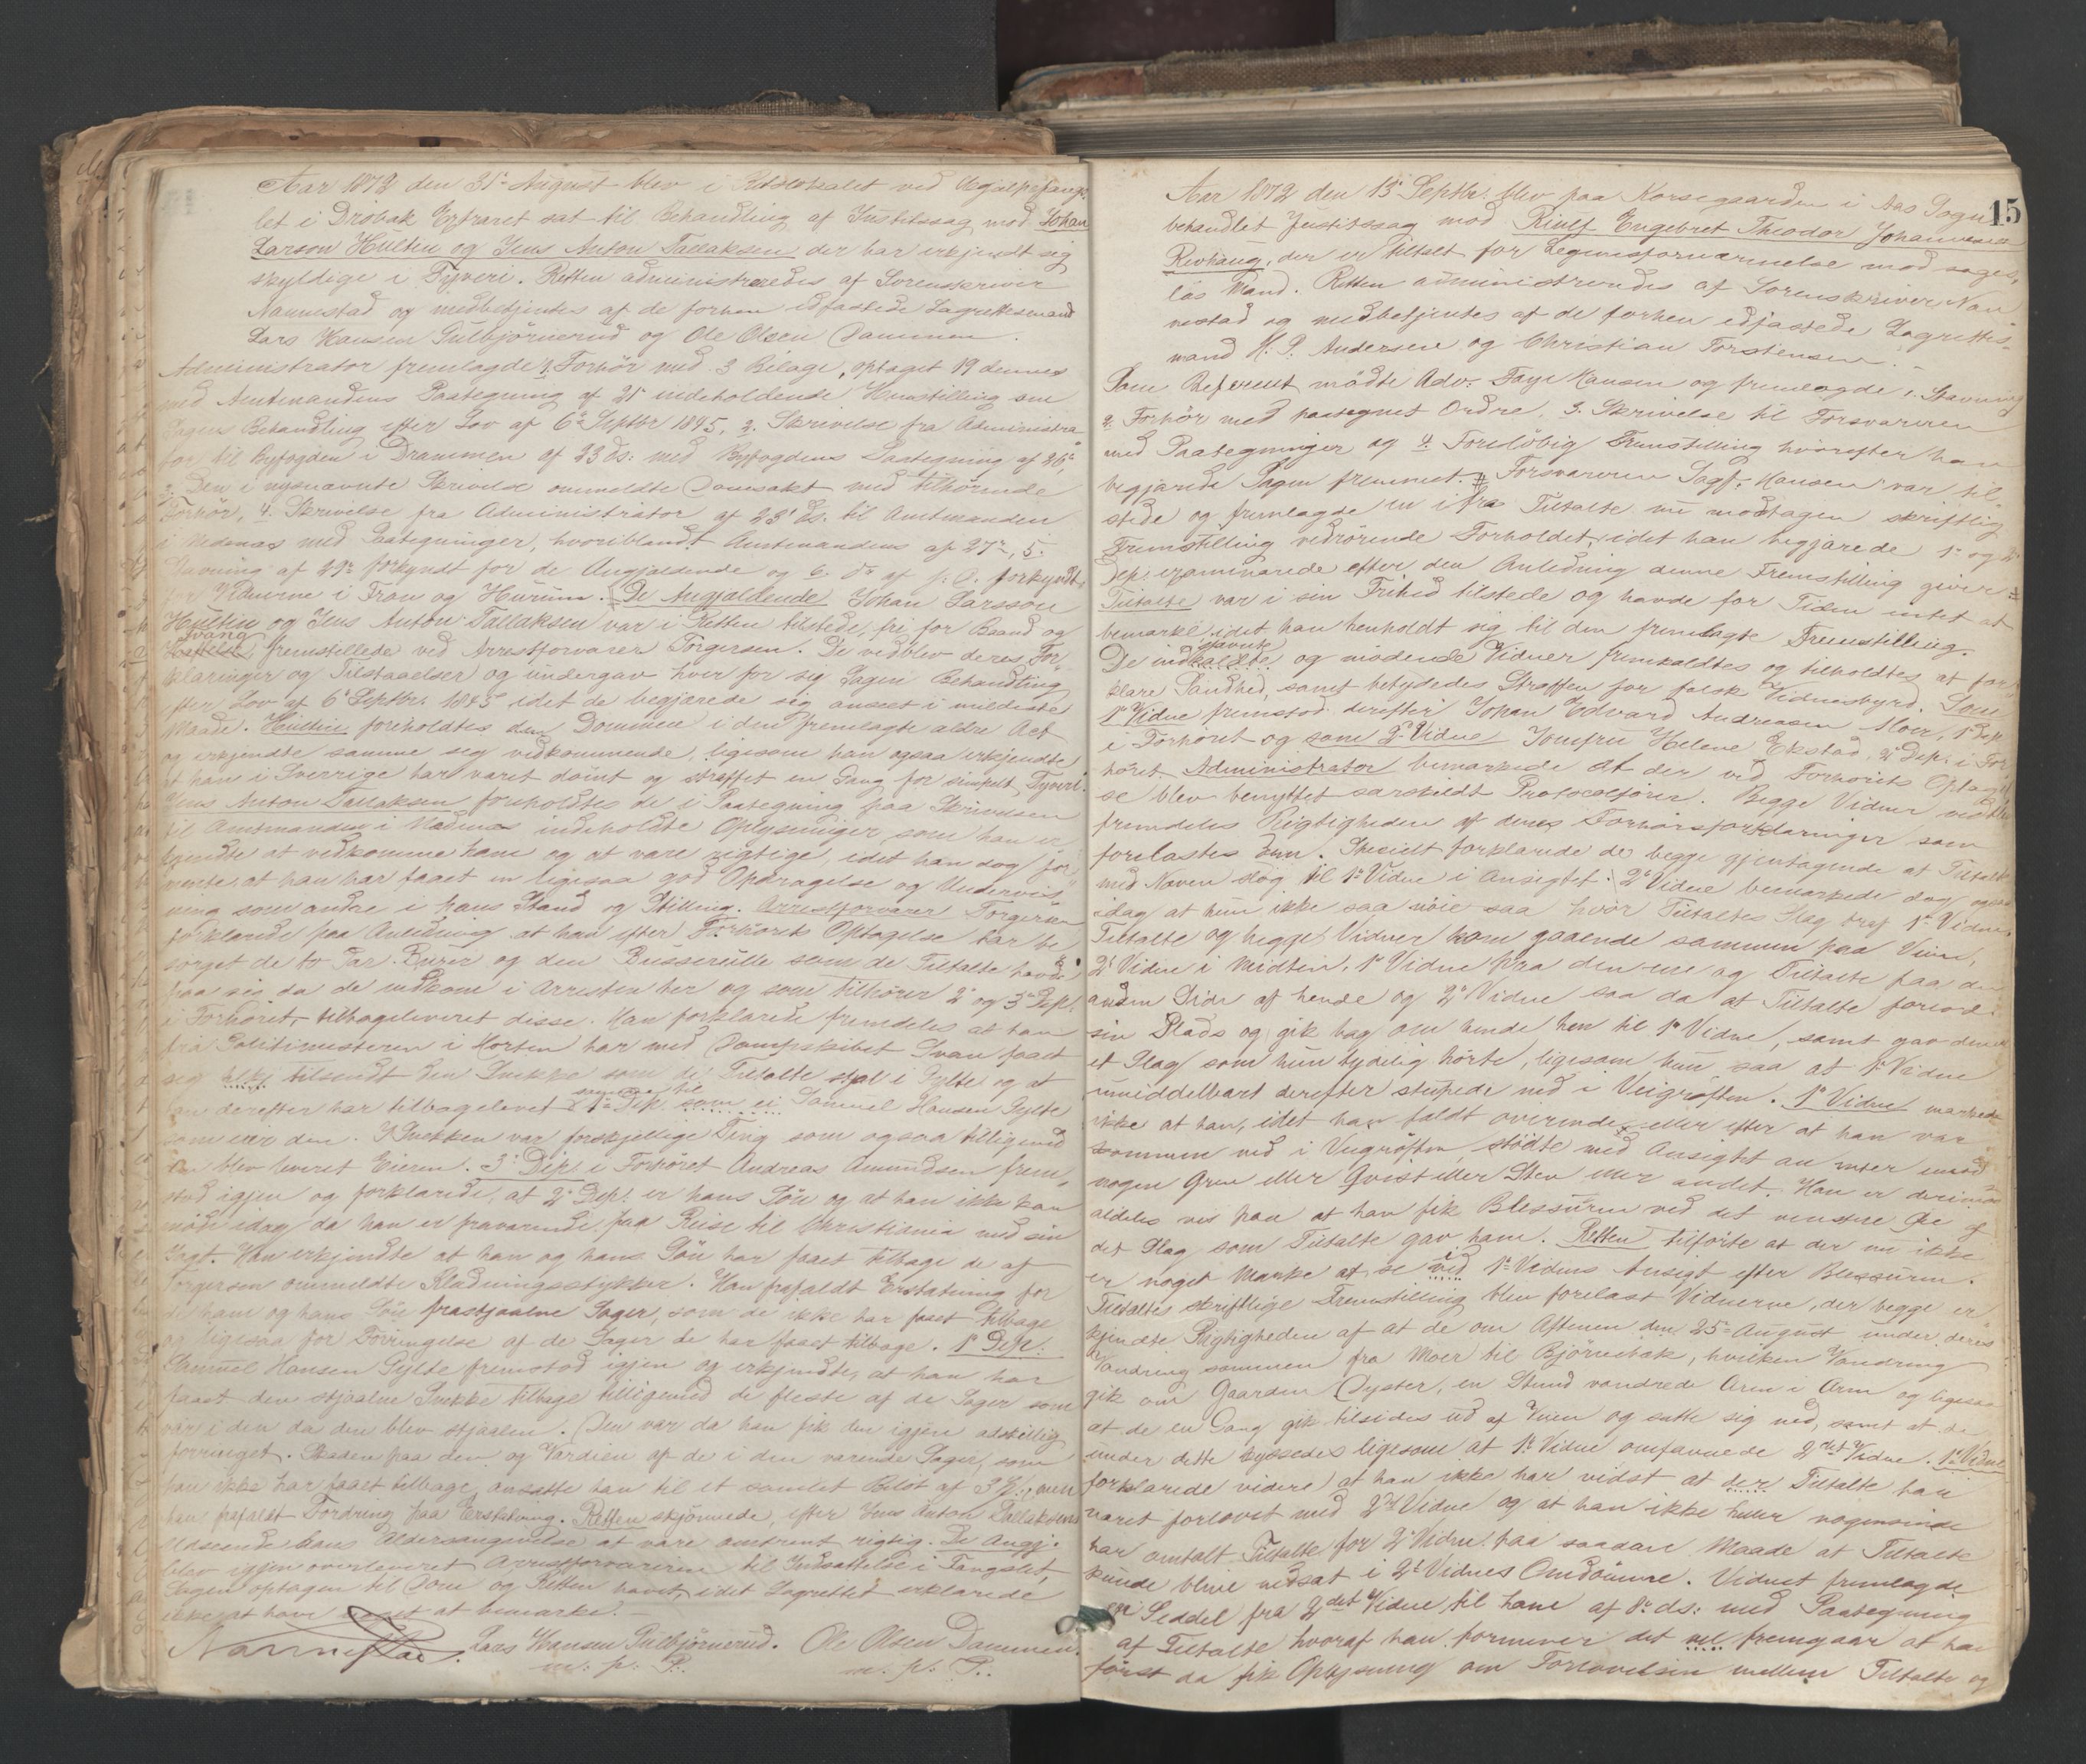 Aar 1872 den 31te August blev i Retslokalet ved Hjælpefængs-
let i Dröbak Extraret sat til Behandling af Justitssag mod Johan
Larson Hultin og Jens Anton Tallaksen der har erkjendt sig
skyldige i Tyveri. Retten administreredes af Sorenskriver
Nannestad og medbetjentes af de forhen edfæstede Lagrettesmænd
Lars Hansen Fulbjörnerud og Ole Olsen Dammen.
Administrator fremlagde 1. Forhör med 3 Bilage, optaget 19 dennes
med Amtmandens Paategning af 21 indeholdende Henstilling om
Sagens Behandling efter Lov af 6te Septbr 1845, 2. Skrivelse fra Administra-
tor til Byfogden i Drammen af 23 ds: med Byfogdens Paategning af 26,
3. Den i nysnævnte Skrivelse ommeldte Domsakt med tilhörende
Forhör, 4. Skrivelse fra Administrator af 23de ds. til Amtmanden
i Nedenæs med Paategninger, hvoriblandt Amtmandens af 27de, 5.
Stævning af 29de forkyndt for de Angjældende og 6. do af s. D. forkyndt
for Vidnerne i Fron og Hurum. De Angjældende Johan Larsson
Hultin og Jens Anton Tallaksen var i Retten tilstede, fri for Baand og
Tvang fremstillede ved Arrestforvarer Torgersen. De vedblev deres For-
klaringer og Tilstaaelser og undergav hver for sig Sagen Behandling
efter Lov af 6te Septbr. 1845 idet de begjærede sig anseet i mildeste
Maade. Hultin foreholdtes den Dommen i den fremlagte ældre Act
og erkjendte samme sig vedkommende, ligesom han ogsaa erkjendte
at han i Sverrige har været dömt og straffet en Gang for simpelt Tyveri.
Jens Anton Tallaksen foreholdtes de i Paategning paa Skrivelsen
til Amtmanden i Nedenæs indeholdte Oplysninger som han er-
kjendte at vedkomme ham og at være rigtige, idet han dog for-
mente at han har faaet en ligesaa god Opdragelse og Undervis-
ning som andre i hans Stand og Stilling. Arrestforvarer Torgersen
forklarede paa Anledning at han efter Forhörets Optagelse har be-
sörget de to Par Buxer og den Busserulle som de Tiltalte havde
paa sig da de indkom i Arresten her og som tilhörer 2de og 3de Dep.
i Forhöret, tilbageleveret disse. Han forklarede fremdeles at han
fra Politimesteren i Horten har med Dampskibet Svan faaet
sig tilsendt den Snekke som de Tiltalte stjal i Sylte og at
han derefter har tilbagelevet 1ste Dep. Samuel Hansen Sylte
som eier den. I Snekken var forskjellige Ting som ogsaa tilligemed
den blev leveret Eieren. 3de Dep. i Forhöret Andreas Amundsen frem-
stod igjen og forklarede, at 2de Dep. er hans Sön og at han ikke kan
möde idag da han er fraværende paa Reise til Christiania med sin
Jagt. Han erkjendte at han og hans Sön har faaet tilbage de af
Torgersen ommeldte Klædningsstykker. Han frafaldt Erstatning for
de ham og hans Sön frastjaalne Sager, som de ikke har faaet tilbage
og ligesaa for Forringelse af de Sager de har faaet tilbage. 1ste Dep:
Samuel Hansen Sylte fremstod igjen og erkjendte, at han har
faaet den stjaalne Snekke tilbage tilligemed de fleste af de Sager som
var i den da den blev stjaalen. Den var da han fik den igjen adskillig
forringet. Skaden paa den og Værdien af de i den værende Sager, som
han ikke har faaet tilbage ansatte han til et samlet Belöb af 3 Spd., men
han frafaldt Fordring paa Erstatning. Retten skjönnede, efter Jens Anton Tallaksens
Udseende hans Aldersangivelse at være omtrent rigtig. De Angj.
blev igjen overleveret Arrestforvareren til Indsættelse i Fængslet,
Sagen optagen til Dom og Retten hævet, idet Lagrettet erklærede
ikke at have noget at bemærke.
Nannestad. Lars Hansen Fulbjörnerud. Ole Olsen Dammen.
m. p. P. m. p. P.
15
Aar 1872 den 13de Septbr. blev paa Korsegaarden i Aas Sogn
behandlet Justitssag mod Riulf Engebret Theodor Johannesen
Revhaug, der er tiltalt for Legemsfornærmelse mod sages-
lös Mand. Retten administreredes af Sorenskriver Nan-
nestad og medbetjentes af de forhen edfæstede Lagrettes-
mænd H. P. Andersen og Christian Torstensen.
Som Referent mödte Adv. Faye Hansen og fremlagde 1. Stævning
2. Forhör med paategnet Ordre, 3. Skrivelse til Forsvareren
med Paategninger og 4. Foreløbig Fremstilling hvorefter han
begjærede Sagen fremmet. Forsvareren Sagf. Hansen var til-
stede og fremlagde en ifra Tiltalte nu modtagen skriftlig
Fremstilling vedrörende Forholdet, idet han begjærede 1ste og 2de
Dep. examinerede efter den Anledning denne Fremstilling giver.
Tiltalte var i sin Frihed tilstede og havde for Tiden intet at
bemærke, idet han henholdt sig til den fremlagte Fremstilling.
De indstævnte og mödende Vidner fremkaldtes og tilholdtes at for-
klare Sandhed, samt betydedes Straffen for falsk Vidnesbyrd. Som
1ste Vidne fremstod derefter Johan Edvard Andreasen Moer, 1ste Dep.
i Forhöret og som 2de Vidne Jomfru Helene Ekstad, 2de Dep. i For-
höret. Administrator bemærkede at der ved Forhörets Optagel-
se blev benyttet særskildt Protocolförer. Begge Vidner vedblev
fremdeles Rigtigheden af deres Forhörsforklaringer som
forelæstes dem. Specielt forklarede de begge gjentagende at Tiltalte
med Næven slog til 1ste Vidne i Ansigtet. 2de Vidne bemærkede dog ogsaa
idag at hun ikke saa nöie saa hvor Tiltaltes Slag traf 1ste Vidne.
Tiltalte og begge Vidner kom gaaende sammen paa Veien,
2de Vidne i Midten, 1ste Vidne paa den ene og Tiltalte paa den
anden Side af hende og 2de Vidne saa da at Tiltalte forlod
sin Plads og gik bag om hende hen til 1ste Vidne, samt gav denne
et Slag som hun tydelig hörte, ligesom hun saa at 1ste Vidne
umiddelbart derefter stupede ned i Veigröften. 1ste Vidne mærkede
ikke at han, idet han faldt overende eller efter at han var
kommen ned i Veigröften, stödte med Ansigtet an imod
nogen Gren eller Qvist eller Sten eller andet. Han er derimod
aldeles vis paa at han fik Blessuren ved det venstre Öie af
det Slag som Tiltalte gav ham. Retten tilförte at der nu ikke
er noget Mærke at se i 1ste Vidnes Ansigt efter Blessuren.
Tiltaltes skriftlige Fremstilling blev forelæst Vidnerne, der begge er-
kjendte Rigtigheden af at de om Aftenen den 25de August under deres
Vandring sammen fra Moer til Björnebæk, hvilken Vandring
gik om Gaarden Dyster, en Stund vandrede Arm i Arm og ligesaa
at de en Gang gik tilsides ud af Veien og satte sig ned, samt at de
under dette kyssedes ligesom at 1ste Vidne omfavnede 2det Vidne. 1ste Vidne
forklarede videre at han ikke har vidst at der Tiltalte har
været forlovet med 2det Vidne og at han ikke heller nogensinde
har omtalt Tiltalte for 2de Vidne paa saadan Maade at Tiltalte
kunde blive nedsat i 2de Vidnes Omdömme. Vidnet fremlagde
en Seddel fra 2det Vidne til ham af 8de ds: med Paategning
af Tiltalte hvoraf han formener det vel fremgaar at han
först da fik Oplysning om Forlovelsen mellem Tiltalte og